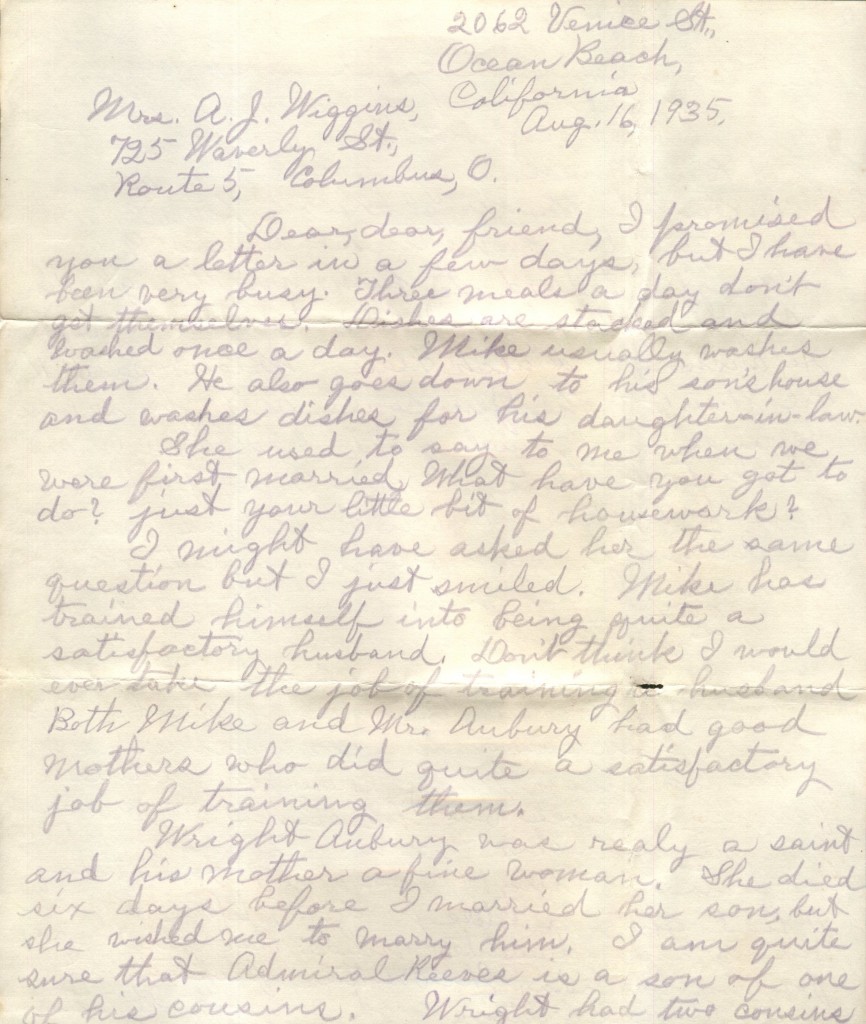 2062 Venice St.,
Ocean Beach,
California
Aug. 16, 1935.
Mrs. A. J. Wiggins,
725 Waverly St.,
Route 5, Columbus, O.
Dear, dear, friend, I promised
you a letter in a few days, but I have
been very busy. Three meals a day don't
get themselves. Dishes are stacked and
washed once a day. Mike usually washes
them. He also goes down to his son's house
and washes dishes for his daughter-in-law.
She used to say to me when we
were first married, What have you got to
do? just your little bit of housework?
I might have asked her the same
question but I just smiled. Mike has
trained himself into being quite a
satisfactory husband. Don't think I would
ever take the job of training a husband
Both Mike and Mr. Aubury had good
mothers who did quite a satisfactory
job of training them.
Wright Aubury was realy a saint
and his mother a fine woman. She died
six days before I married her son, but
she wished me to marry him. I am quite
sure that Admiral Reeves is a son of one
of his cousins. Wright had two cousins